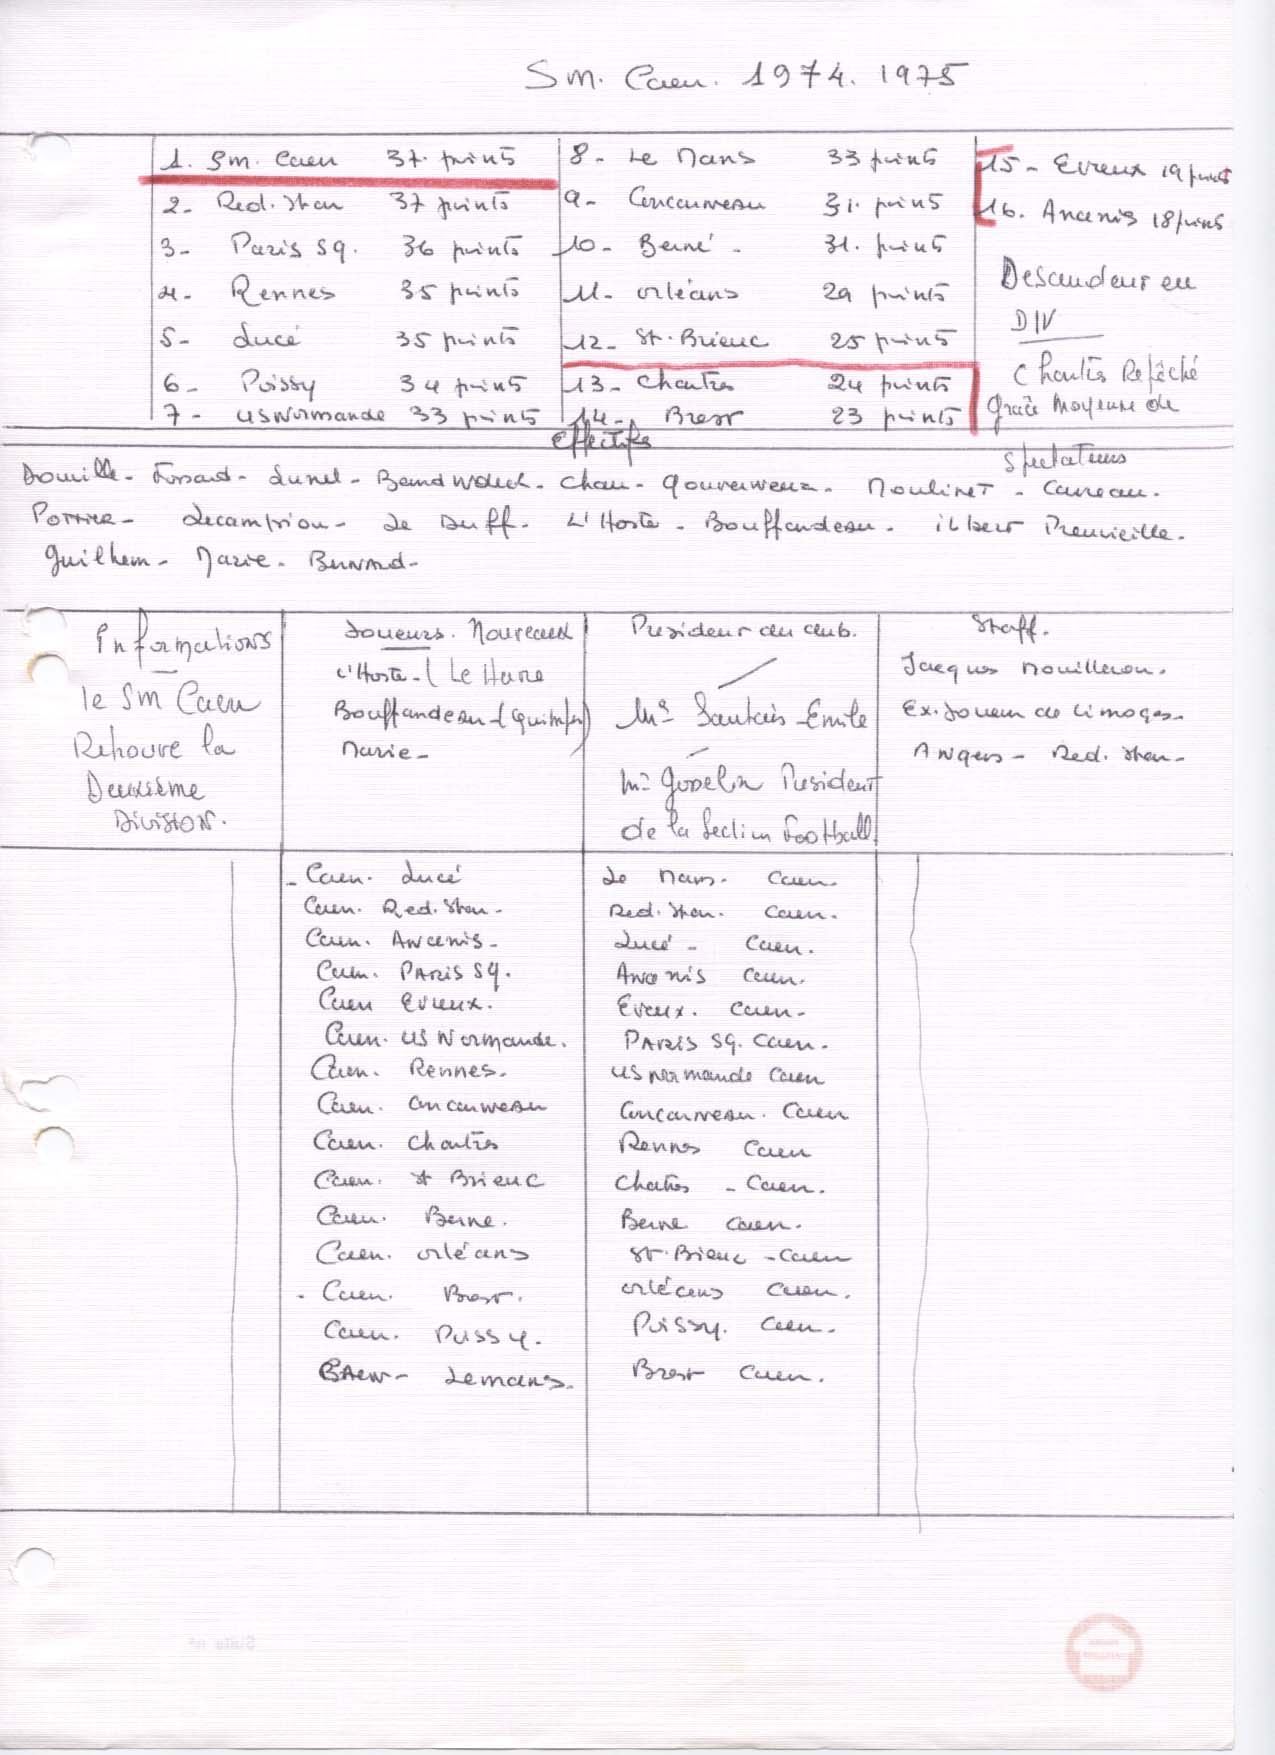 Sm. Caen. 1974. 1975
1. Sm. Caen 37. points
2- Red. Star 37 points
3- Paris SG. 36 points
4- Rennes 35 points
5- Lucé 35 points
6- Poissy 34 points
7- US Normande 33 points
8- Le Mans 33 points
9- Concarneau 31. points
10- Berné - 31. points
11- orléans 29 points
12- St. Brieuc 25 points
13- Chartres 24 points
14- Brest 23 points
15- Evreux 19 points
16. Ancenis 18 points
Descendeur en
DIV
Chartres Repêché
grâce moyenne de
Spectateurs
Effectifs
Douville- Fossard- Lunel- - Chau- Gouverneux- Moulinet - Carreau.
Pottier- Decamprion- Le Duff. L'Hoste- Bouffandeau. Preuvieille-
Guilhem- Marie- Bunard-
Informations
le Sm Caen
Retrouve la
Deuxième
Division.
Joueurs. Nouveaux
L'Hoste-( Le Havre
Bouffandeau-(Quimper)
Marie-
President du club.
Mr Sautais Emile
Mr Gosselin President
de la Section Football
Staff.
Jacques Mouilleron.
Ex. Joueur de Limoges-
Angers- Red. Star-
- Caen. Lucé
Caen. Red. Star-
Caen. Ancenis-
Caen. PARIS SG.
Caen Evreux.
Caen. US Normande.
Caen. Rennes.
Caen. Concarneau
Caen. Chartres
Caen. St Brieuc
Caen. Berne.
Caen. orléans
- Caen. Brest.
Caen. Puissy.
CAen- Lemans.
Le Mans. Caen.
Red. Star. Caen.
Lucé - Caen.
Ancenis Caen.
Evreux. Caen-
PARIS SG. Caen-
US Normande Caen
Concarneau. Caen
Rennes Caen
Chartres - Caen.
Berne Caen.
St. Brieuc - Caen
orléans Caen.
Poissy. Caen-
Brest Caen.